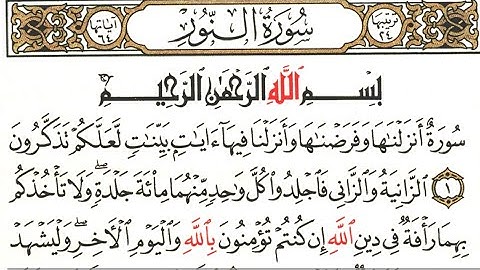 ترتيبها ٢٤ سُورَةُ النُّورِ آياتها ٦٤
بِسْمِ اللَّهِ الرَّحْمَٰنِ الرَّحِيمِ
سُورَةٌ أَنزَلْنَٰهَا وَفَرَضْنَٰهَا وَأَنزَلْنَا فِيهَآ ءَايَٰتٍۭ بَيِّنَٰتٍ لَّعَلَّكُمْ تَذَكَّرُونَ
١ ٱلزَّانِيَةُ وَٱلزَّانِى فَٱجْلِدُوا۟ كُلَّ وَٰحِدٍ مِّنْهُمَا مِا۟ئَةَ جَلْدَةٍ ۖ وَلَا تَأْخُذْكُم
بِهِمَا رَأْفَةٌ فِى دِينِ ٱللَّهِ إِن كُنتُمْ تُؤْمِنُونَ بِٱللَّهِ وَٱلْيَوْمِ ٱلْـَٔاخِرِ ۖ وَلْيَشْهَدْ